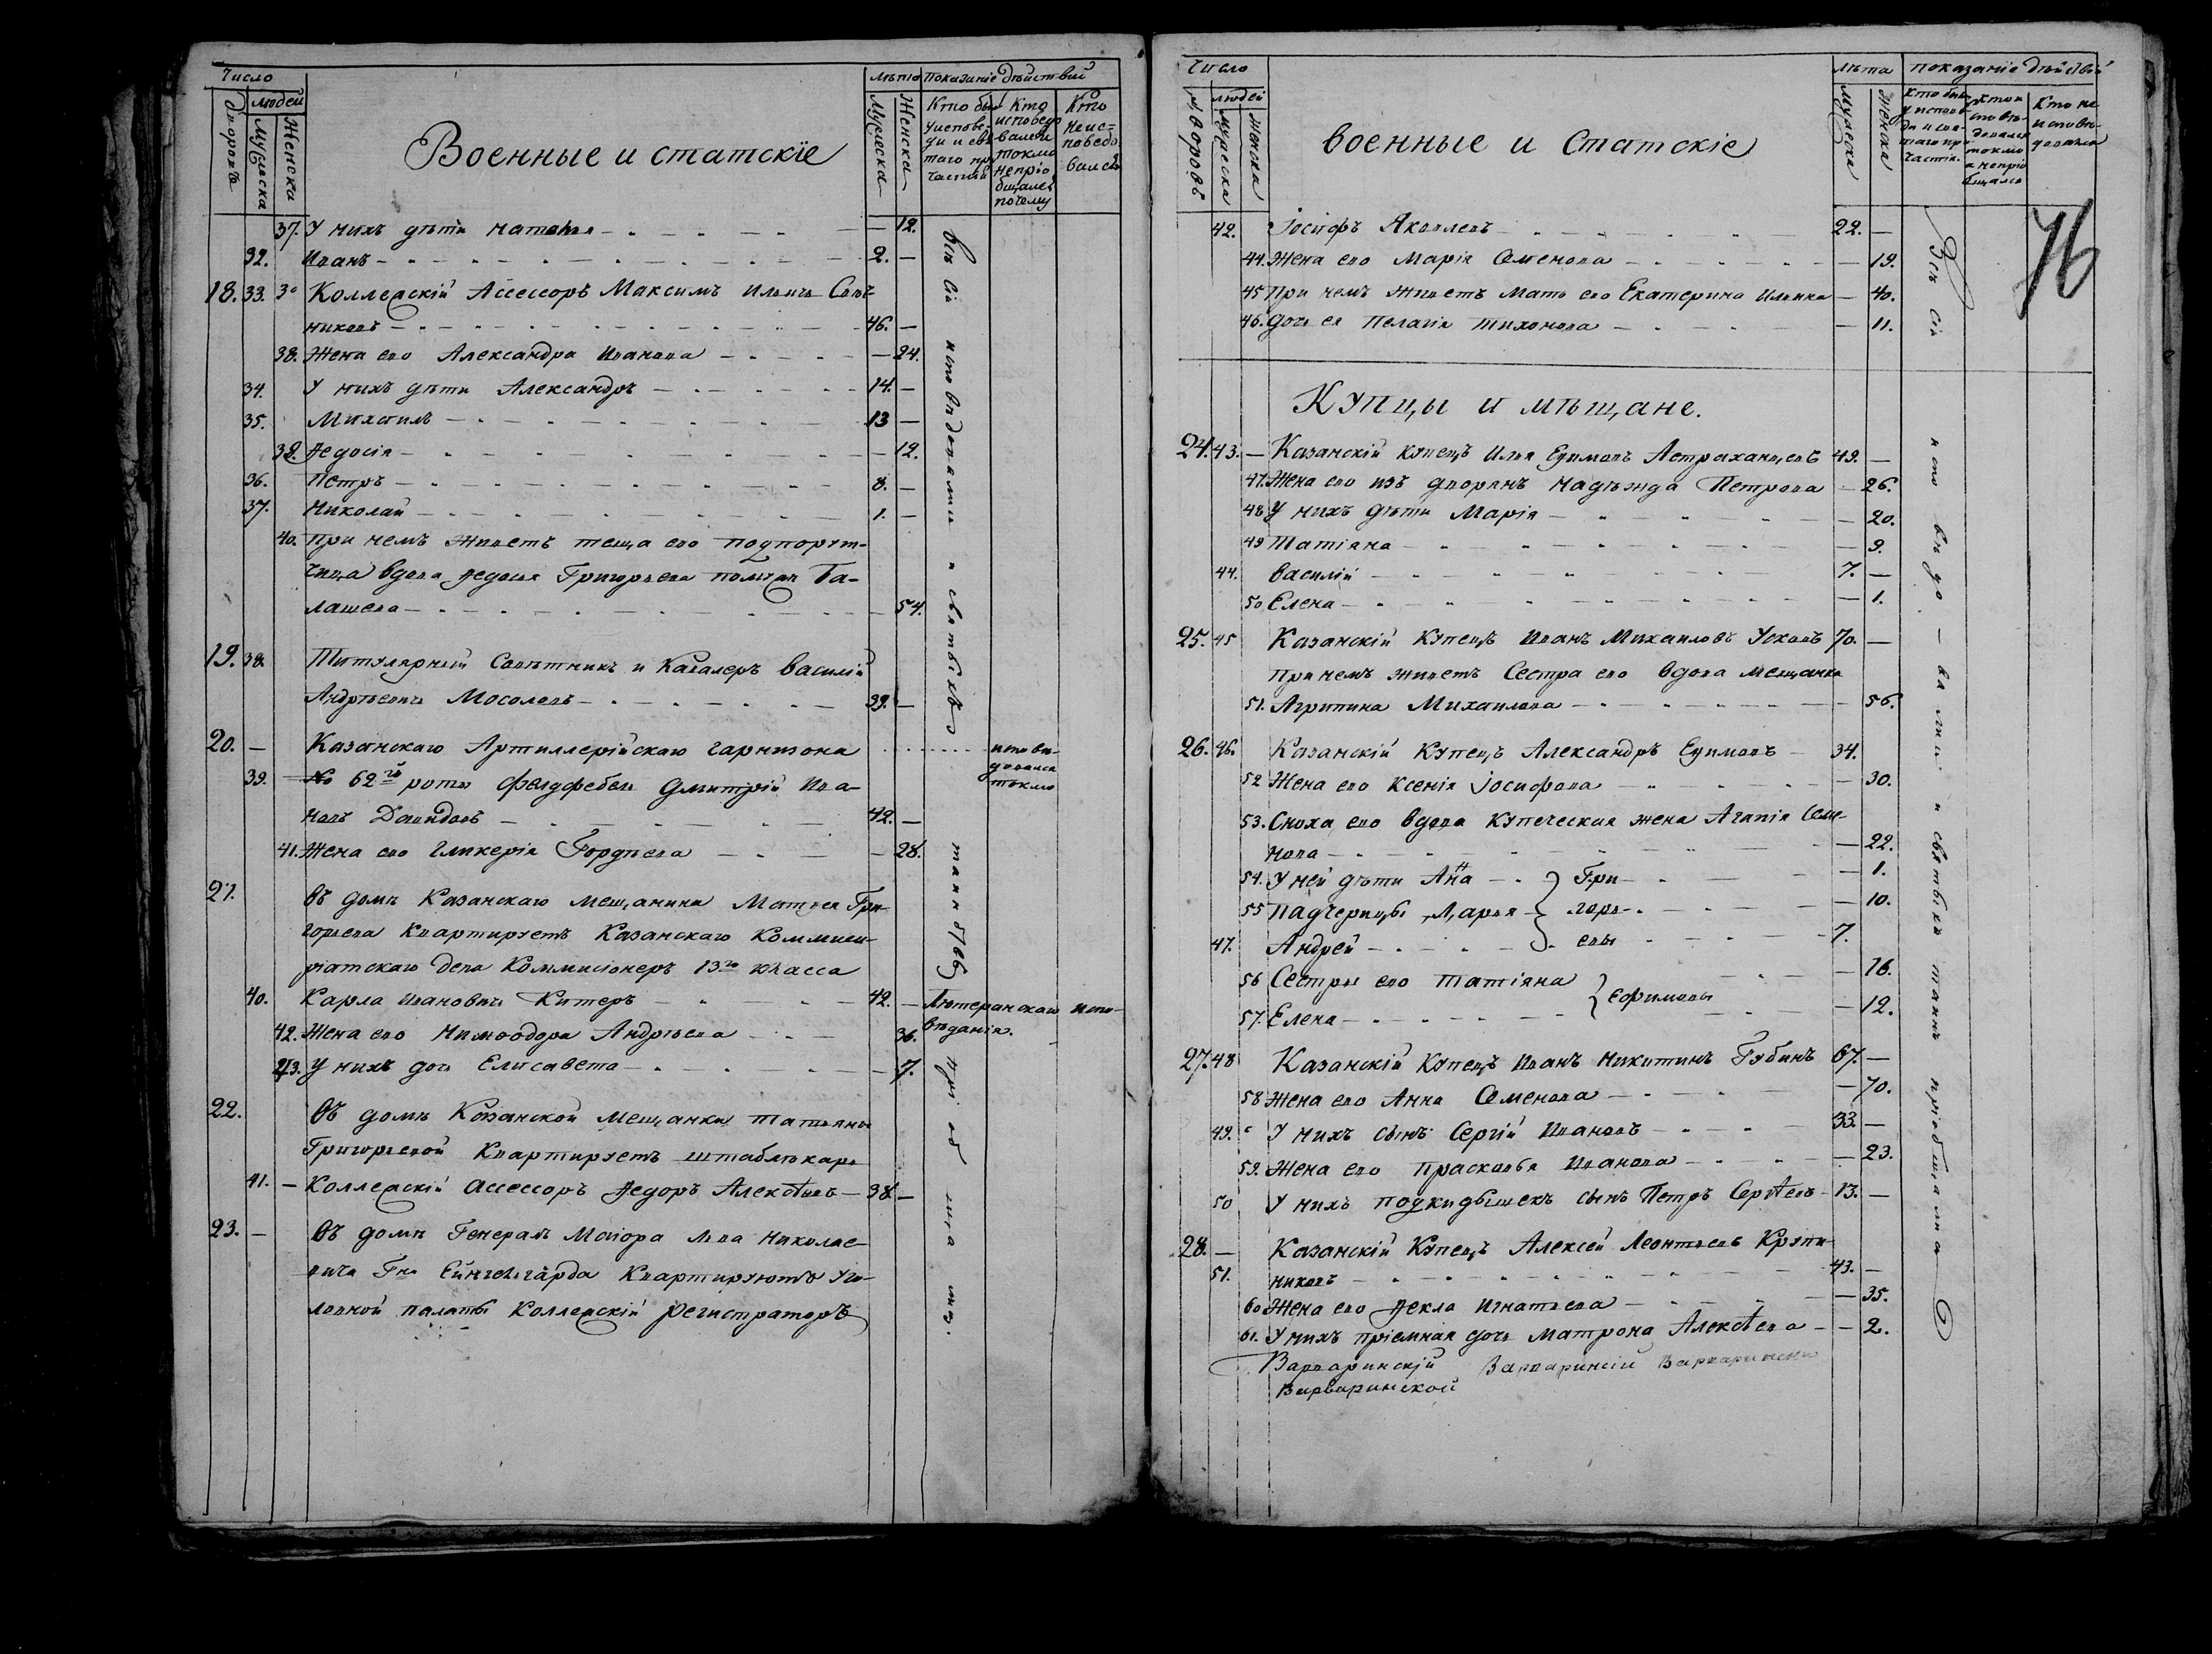 Число
людей
дворовъ
Мужеска
Женска
Военные и статскіе
лѣта
показаніе дѣйствій
Мужеска
Женска
Кто был у исповеди и святаго причастія
Кто исповедовался токмо неприобщался почему
Кто неисповедовался
37. У нихъ дѣти Наталья 12.
32. Иванъ 2.
18. 33. Коллежскій Ассессоръ Максимъ Ильичъ
никовъ 46.
38. Жена его Александра Иванова 24.
34. У нихъ дѣти Александръ 14.
35. Михаилъ 13
39. Ѳедосія 12.
36. Петръ 8.
37. Николай 1.
40. При немъ живетъ теща его подпорут-
чица вдова Ѳедосья Григорьева Ба-
лашева 54.
19. 38. Титулярный Совѣтникъ и Кавалеръ Василій
Андрѣевичъ Мосоловъ 39.
20. Казанскаго Артиллерійскаго гарнизона исповѣ-
довался
токмо
39. № 62й роты фелдфебель Дмитрій Ива-
новъ Давидовъ 42.
41. Жена его Гликерія Гордѣева 28.
21. Въ домѣ Казанскаго мещанина Матвея Гри-
горьева Квартируетъ Казанскаго Коммиси-
ріатскаго депа Коммисіонеръ 13го класса
40. Карла Ивановичъ Китеръ 42. Лютеранскаго испо-
вѣданія.
42. Жена его Нимфодора Андрѣева 36.
43. У нихъ дочь Елисавета 7.
22. Въ домѣ Казанской мещанки Татьяны
Григорьевой Квартируетъ штаблѣкарь
41. Коллежскій ассессоръ Ѳедоръ Алексѣевъ 38.
23. Въ домѣ Генералъ Маіора Льва Николае-
вича Гна Ейнгельгарда Квартируютъ Уго-
ловной палаты Коллежскій регистраторъ
всѣ сіи исповѣдовались и святыхъ таинъ пріобщались.
Число
людей
дворовъ
мужеска
женска
военные и Статскіе
лѣта
показаніе дѣйствій
мужеска
женска
Кто былъ у исповеди и святаго причастія
Кто исповѣдовался токмо а непріобщался
Кто не исповѣдовался
76
42. Іосифъ Яковлевъ 22.
44. Жена его Марія Семенова 19.
45 При немъ живетъ мать его Екатерина Ильина 40.
46. дочь ея Пелагія Тихонова 11.
Купцы и мѣщане.
24. 43. Казанскій Купецъ Илья Ефимовъ Астраханцевъ 49.
47. Жена его изъ дворянъ Надѣжда Петрова 26.
48 У нихъ дѣти Марія 20.
49 Татіяна 9.
44. Василій 7.
50 Елена 1.
25. 45 Казанскій Купецъ Иванъ Михаиловъ Усковъ 70.
При немъ живетъ Сестра его вдова мещанка
51. Агрипина Михаилова 56.
26. 46. Казанскій Купецъ Александръ Ефимовъ 34.
52 Жена его Ксенія Іосифова 30.
53. Сноха его вдова купеческая жена Агапія Семе-
нова 22.
54. У ней дѣти Анна Гри- 1.
55 падчерицы Дарья горь- 10.
47. Андрей евы 7.
56 Сестры его Татіяна 16.
Ефимовы
57. Елена 12.
27. 48 Казанскій Купецъ Иванъ Никитинъ Губинъ 67.
58 Жена его Анна Семенова 70.
49. У нихъ сынъ Сергій Ивановъ 33.
59. Жена его Прасковья Иванова 23.
50 У нихъ подкидышекъ сынъ Петръ Сергѣевъ 13.
28. Казанскій Купецъ Алексей Леонтьевъ Крупе-
51. никовъ 43.
60 Жена его Ѳекла Игнатьева 35.
61. У нихъ пріемная дочь Матрона Алексѣева 2.
Варваринскій Варваринсіи Варварински
Варваринской
Всѣ сіи исповѣдовались и святыхъ таинъ пріобщались